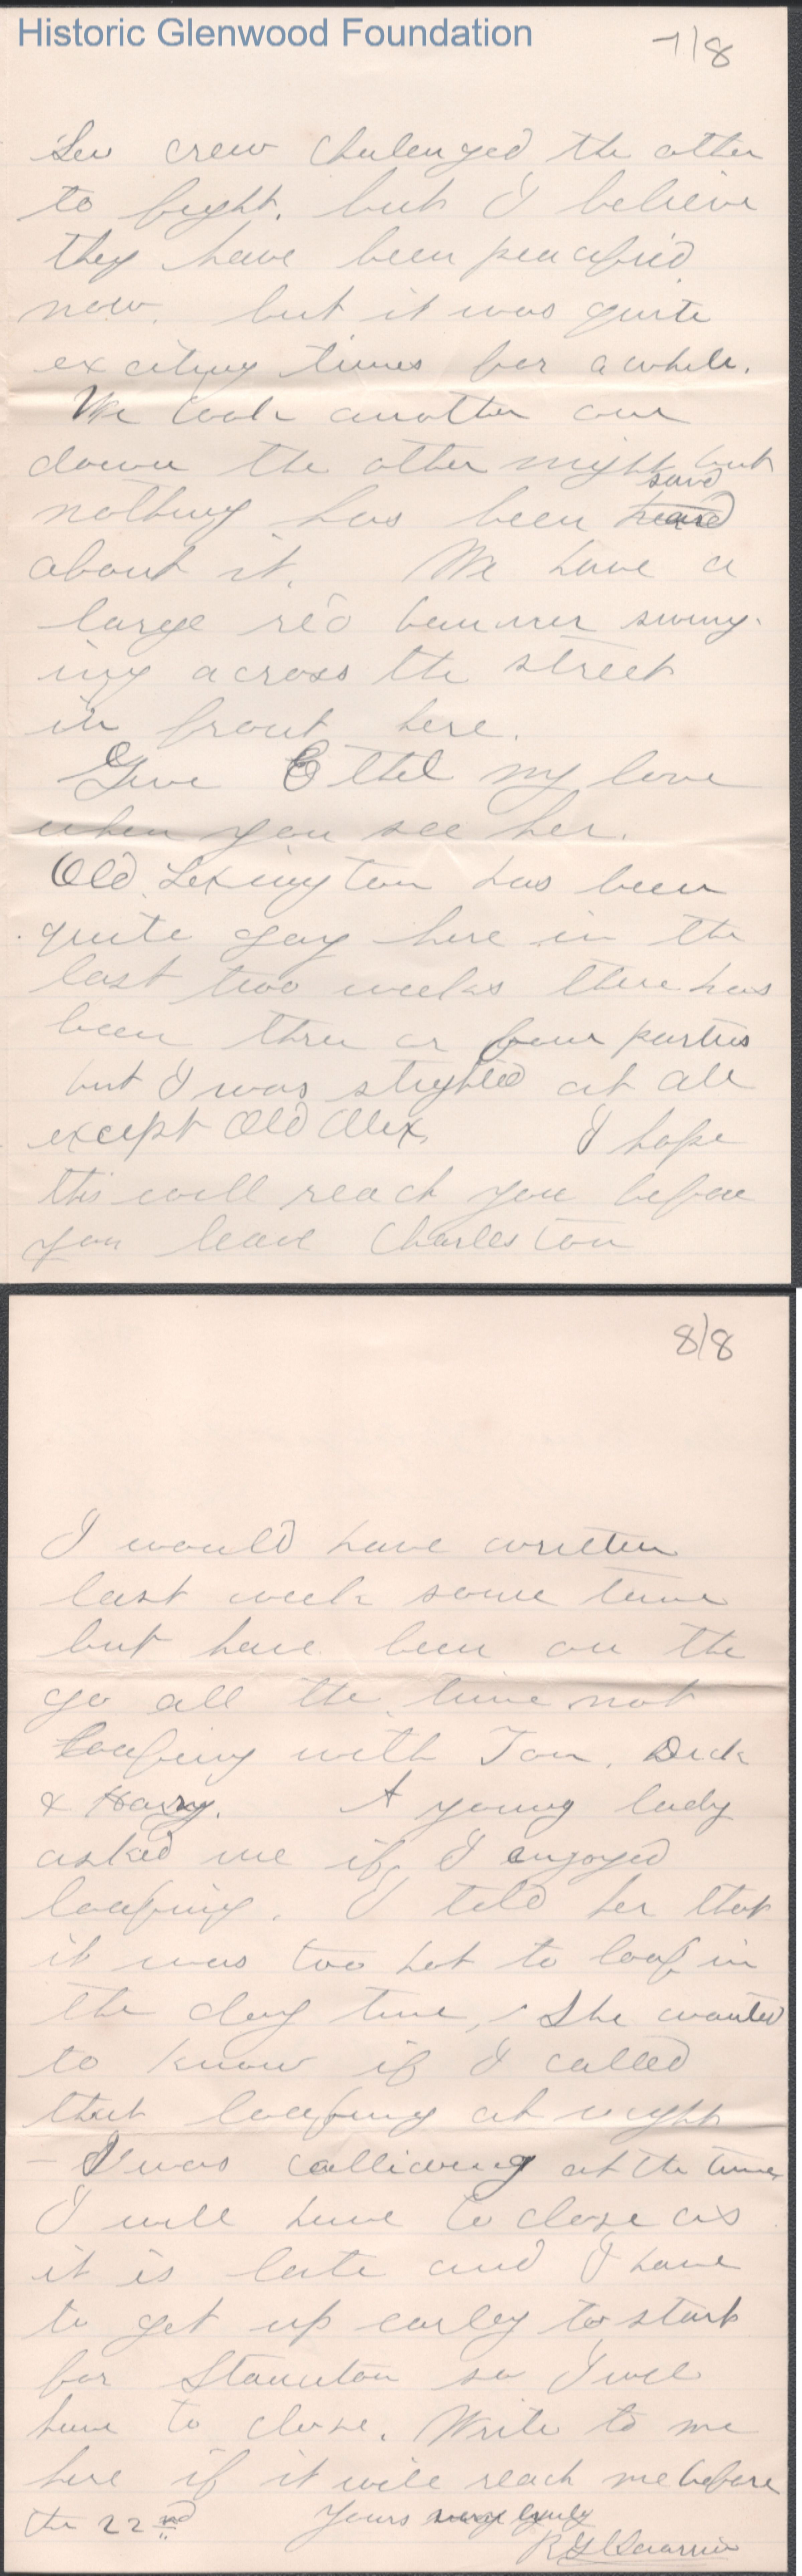 Historic Glenwood Foundation
7/8
Lew crew chalenged the other
to fight. but I believe
they have been peacified
now. but it was quite
exciting times for a while.
We took another one
down the other night but
said
nothing has been heard
about it. We have a
large red banner swing-
ing across the street
in front here.
Give Ethel my love
when you see her.
Old Lexington has been
quite gay here in the
last two weeks there has
been three or four parties
but I was slighted at all
except Old Alex. I hope
this will reach you before
you leave Charleston
8/8
I would have written
last week some time
but have been on the
go all the time not
loafing with Tom, Dick
& Harry. A young lady
asked me if I enjoyed
loafing. I told her that
it was too hot to loaf in
the day time, She wanted
to know if I called
that loafing at night
- I was calling at the time
I will have to close as
it is late and I have
to get up earley to start
for Staunton so I will
have to close. Write to me
here if it will reach me before
the 22nd Yours very truly
R G